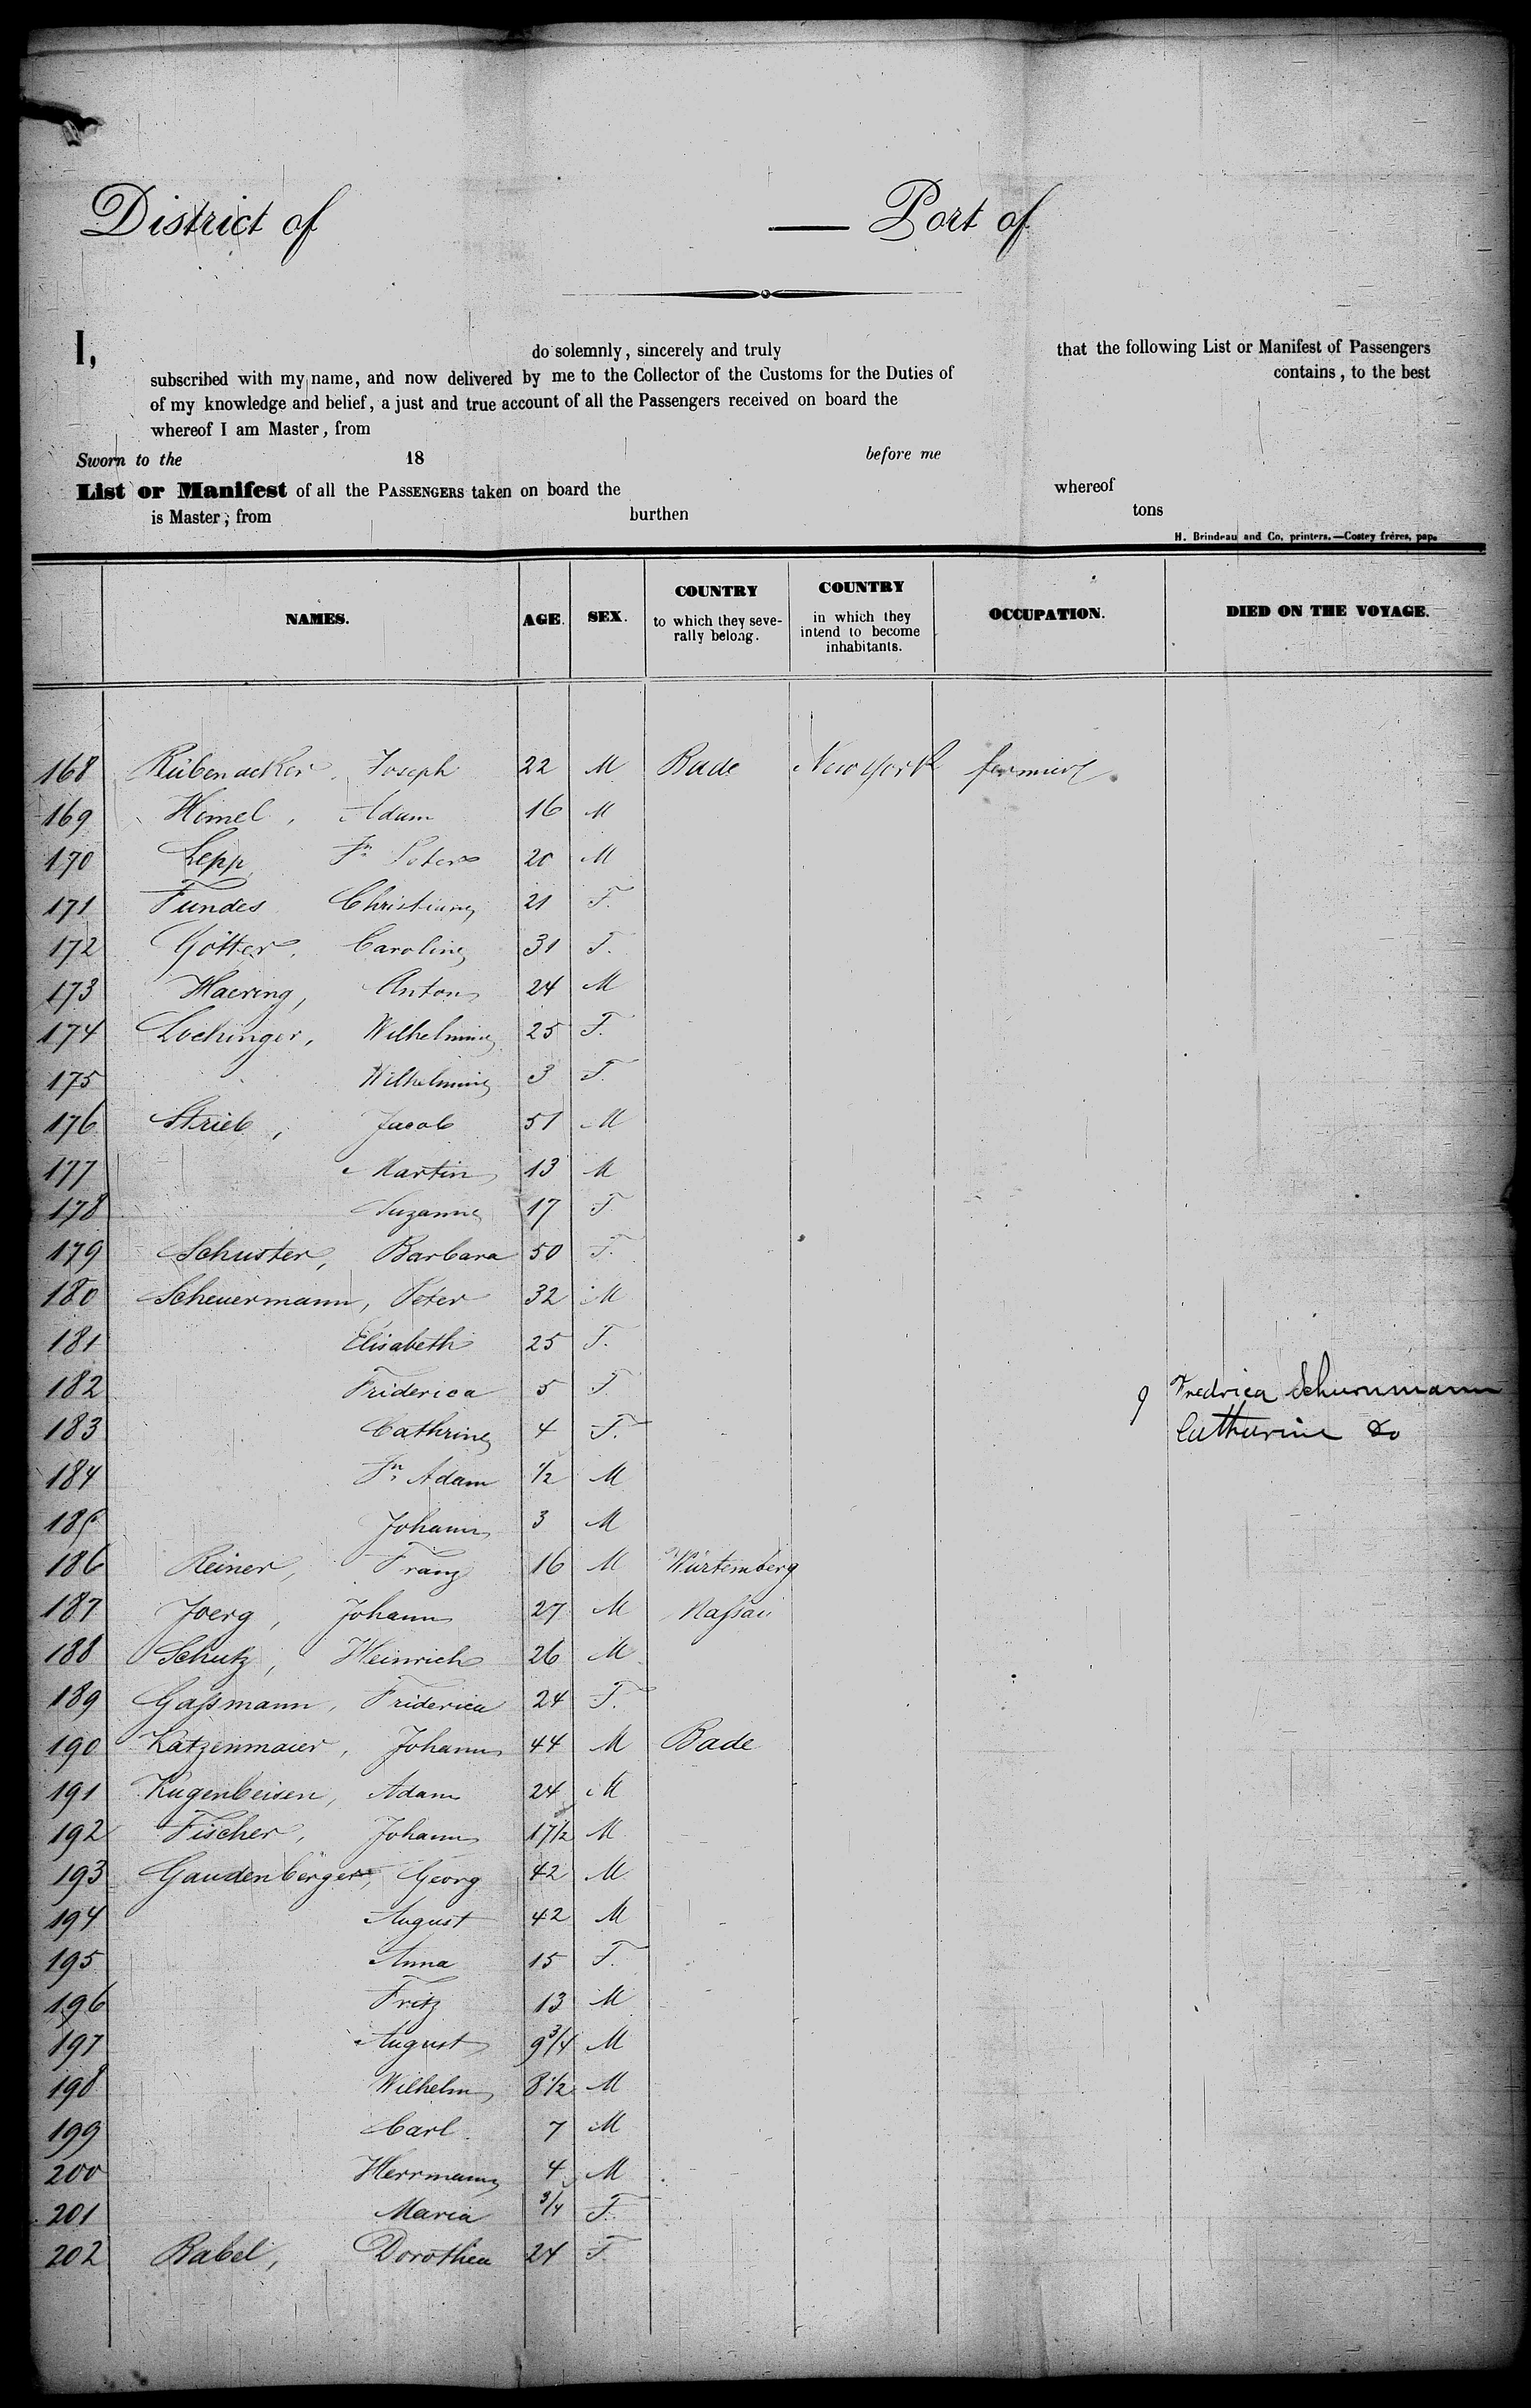 District of — Port of
I, do solemnly, sincerely and truly that the following List or Manifest of Passengers
subscribed with my name, and now delivered by me to the Collector of the Customs for the Duties of contains, to the best
of my knowledge and belief, a just and true account of all the Passengers received on board the
whereof I am Master, from
Sworn to the 18 before me
List or Manifest of all the PASSENGERS taken on board the whereof
is Master; from burthen tons
H. Brindeau and Co, printers.—Costey fréres, pap.
NAMES. AGE. SEX. COUNTRY to which they seve-rally belong. COUNTRY in which they intend to become inhabitants. OCCUPATION. DIED ON THE VOYAGE.
168 Rübenacker, Joseph 22 M Bade New York
169 Himel, Adam 16 M
170 Lepp, Jn Peter 20 M
171 Fundes Christiane 21 F.
172 Götter, Caroline 31 F.
173 Haering, Anton 24 M
174 Lochinger, Wilhelmine 25 F.
175 Wilhelmine 3 F.
176 Strieb, Jacob 51 M
177 Martin 13 M
178 Suzanne 17 F
179 Schuster, Barbara 50 F.
180 Scheuermann, Peter 32 M
181 Elisabeth 25 F.
182 Friderica 5 F. 9 Fredrica Schurnmann
183 Cathrine 4 F. Catharine do
184 Jn Adam 1/2 M
185 Johann 3 M
186 Reiner, Franz 16 M Würtemberg
187 Joerg, Johann 27 M Naßau
188 Schutz, Heinrich 26 M
189 Gaßmann, Friderica 24 F.
190 Katzenmaier, Johann 44 M Bade
191 Kugenbeisen, Adam 24 M
192 Fischer, Johann 17 1/2 M
193 Gaudenberger, Georg 42 M
194 August 42 M
195 Anna 15 F.
196 Fritz 13 M
197 August 9 3/4 M
198 Wilhelm 8 1/2 M
199 Carl 7 M
200 Herrmann 4 M
201 Maria 3/4 F.
202 Babel, Dorothea 24 F.